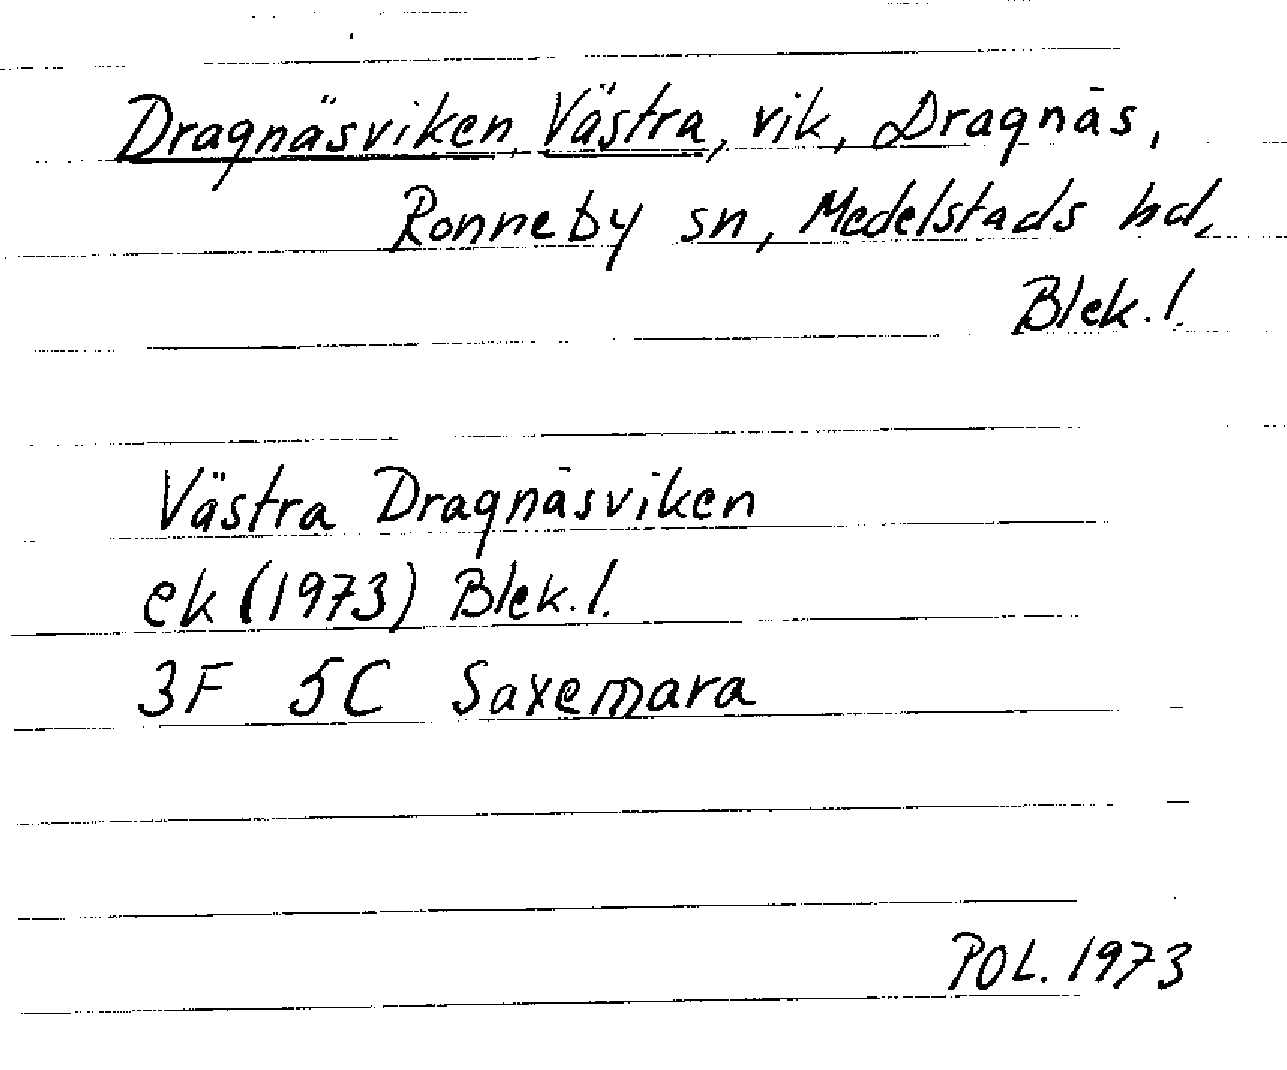 Dragnäsviken, Västra, vik, Dragnäs,
Ronneby sn, Medelstads hd,
Blek. l.
Västra Dragnäsviken
ek (1973) Blek. l.
3F 5C Saxemara
POL. 1973